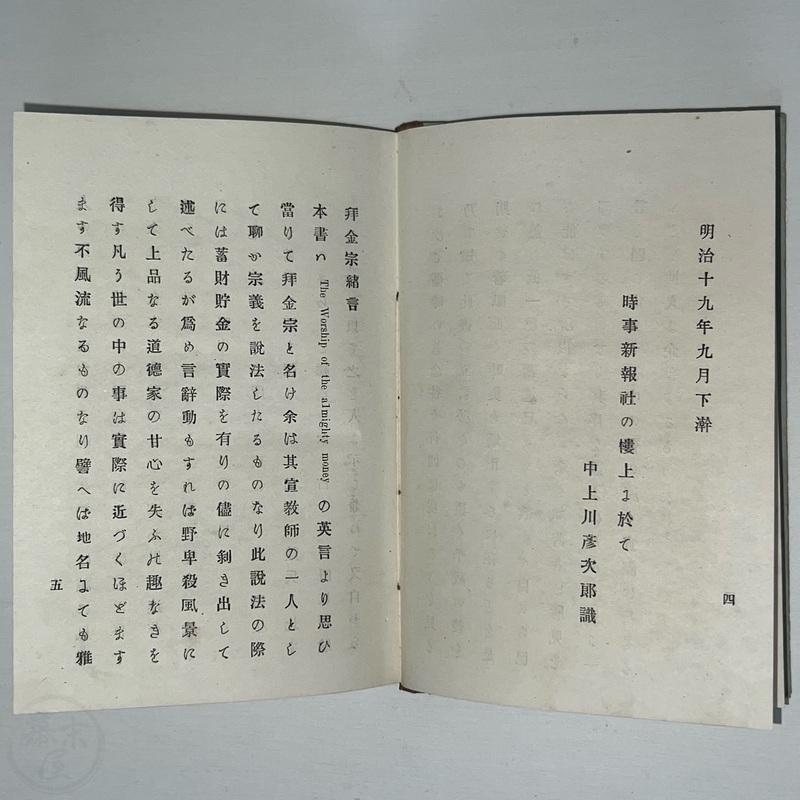 明治十九年九月下澣
時事新報社の樓上よ於て
中上川彦次郎識
四
拜金宗緒言
本書ハ The Worship of the almighty money の英言より思ひ
當りて拜金宗と名け余は其宣教師の一人とし
て聊か宗義を說法したるものなり此說法の際
には蓄財貯金の實際を有りの儘に剝き出して
述べたるが爲め言辭動もすれは野卑殺風景に
して上品なる道德家の甘心を失ふの趣なきを
得す凡う世の中の事は實際に近づくほどます
ます不風流なるものなり譬へは地名よても雅
五